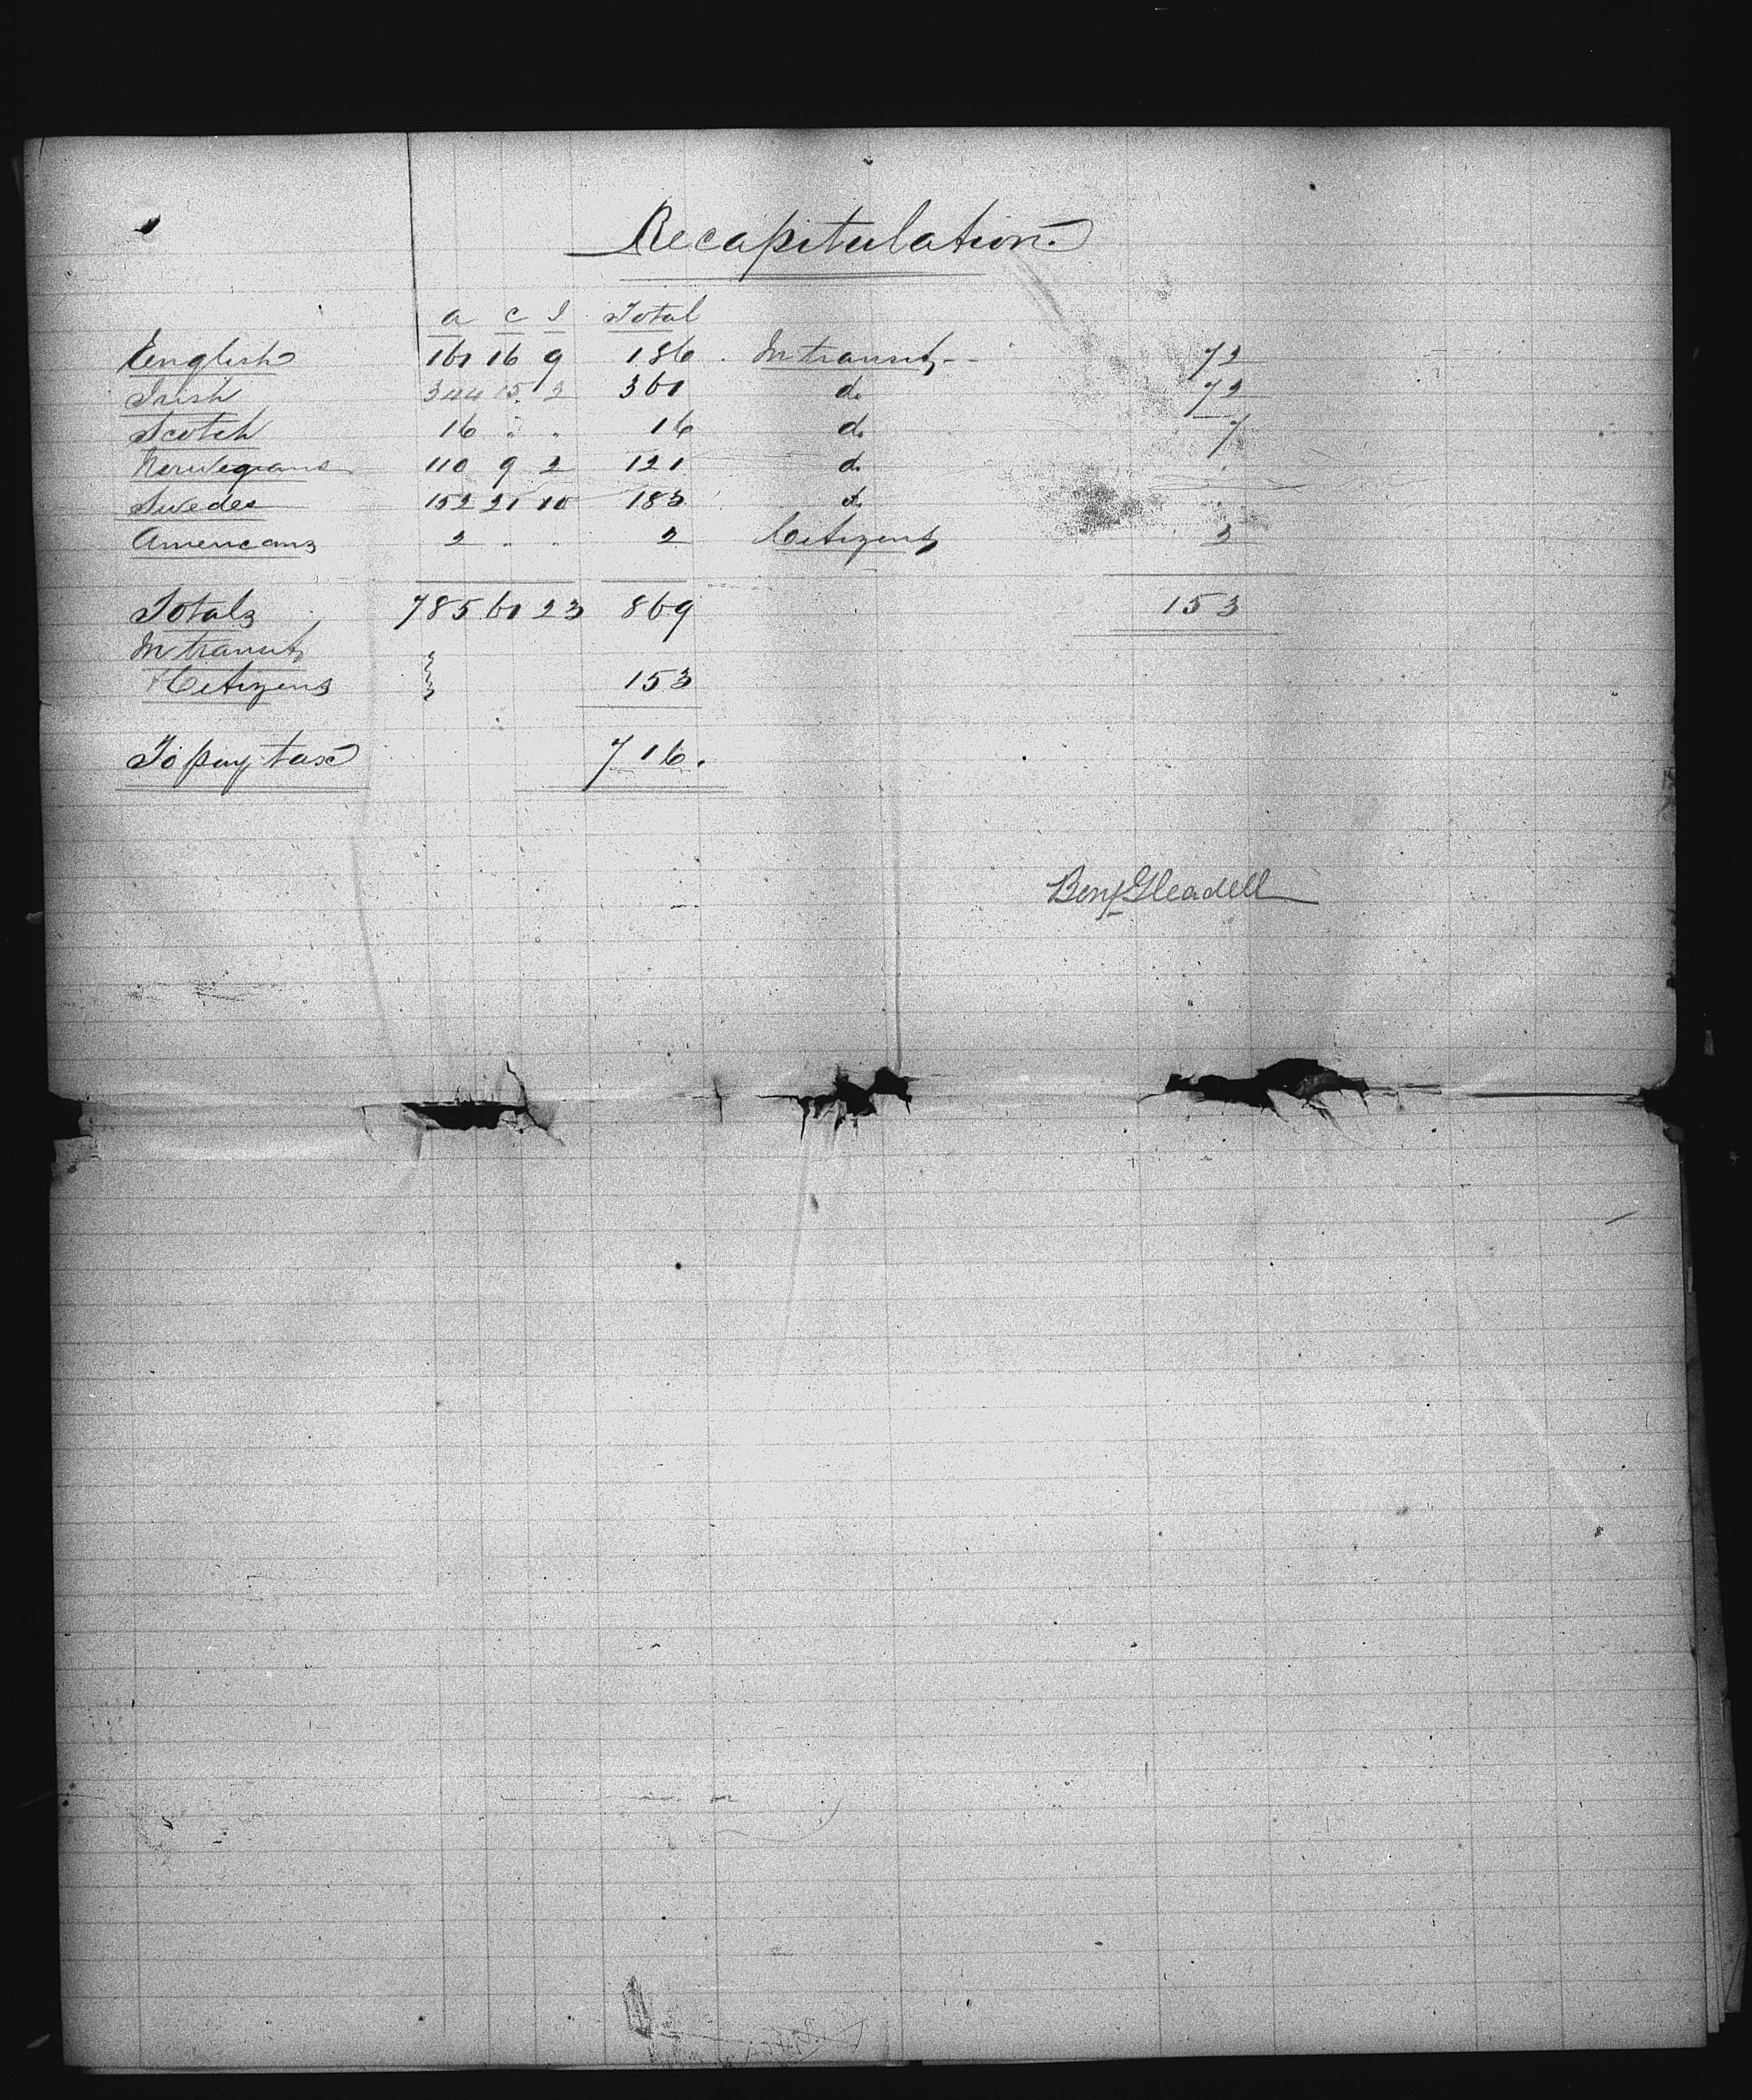 Recapitulation.
a c I Total
English 161 16 9 186 . In transit, - - 72
Irish 344 15 2 361 do 72
Scotch 16 " " 16 do 7
Norwegians 110 9 2 121 do "
Swedes 152 21 10 183 do "
Americans 2 " " 2 Citizens 2
Totals 785 61 23 869 153
In transit
& Citizens } 153
To pay tax 716.
Benj Gleadell